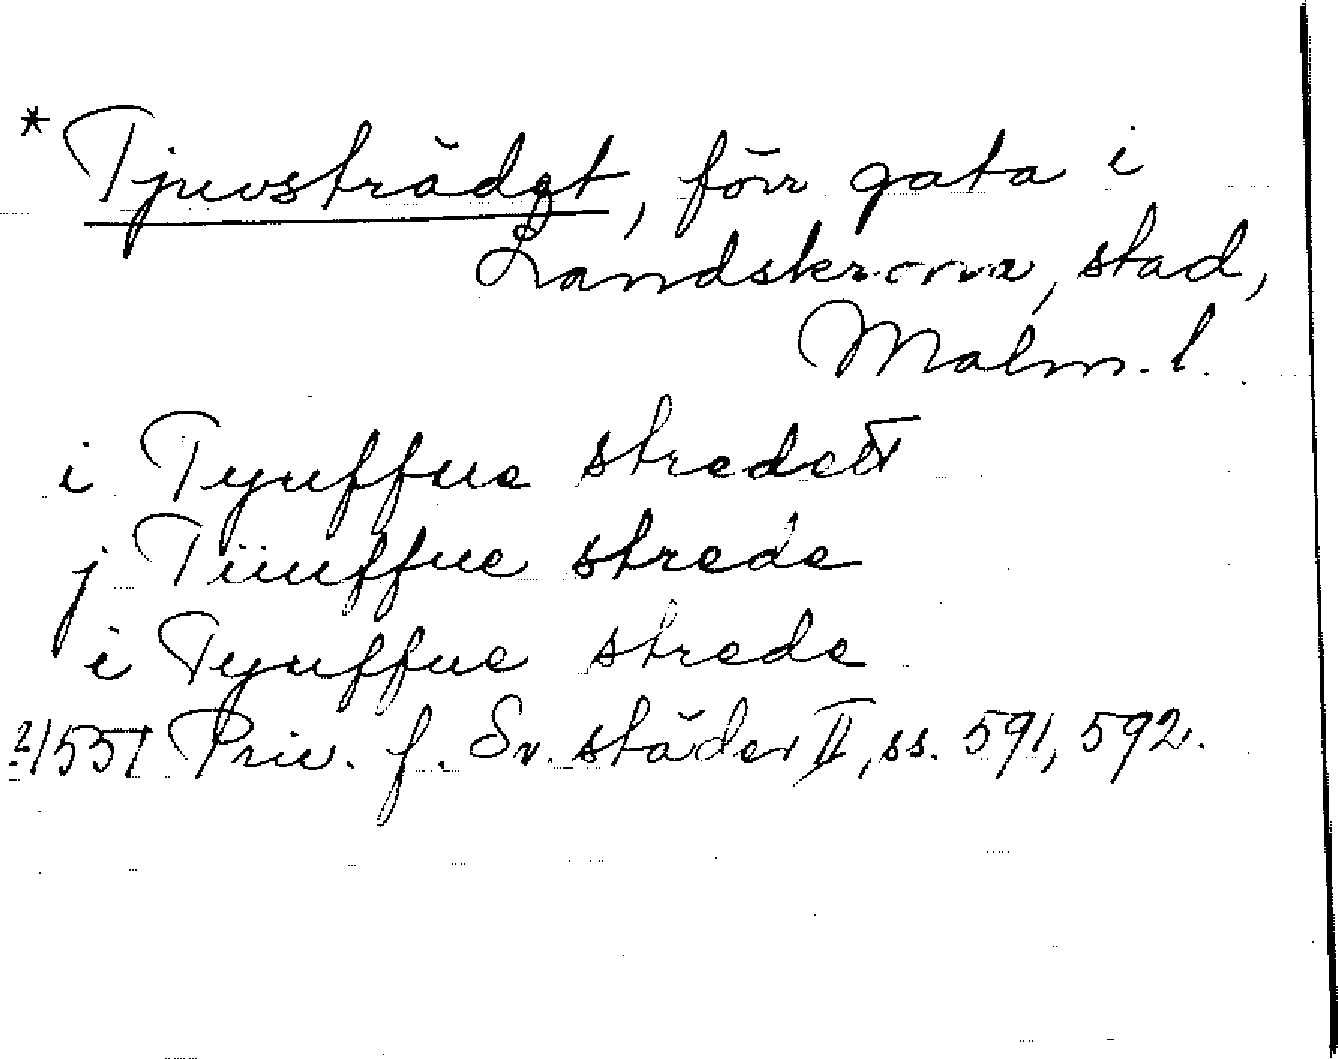 * Tjuvsträdet, förr gata i
Landskrona, stad,
Malm. l.
i Tyuffue stredett
j Tiiuffue strede
i Tyuffue strede
2/1551 Priv. f. Sv. städer II, ss. 591, 592.